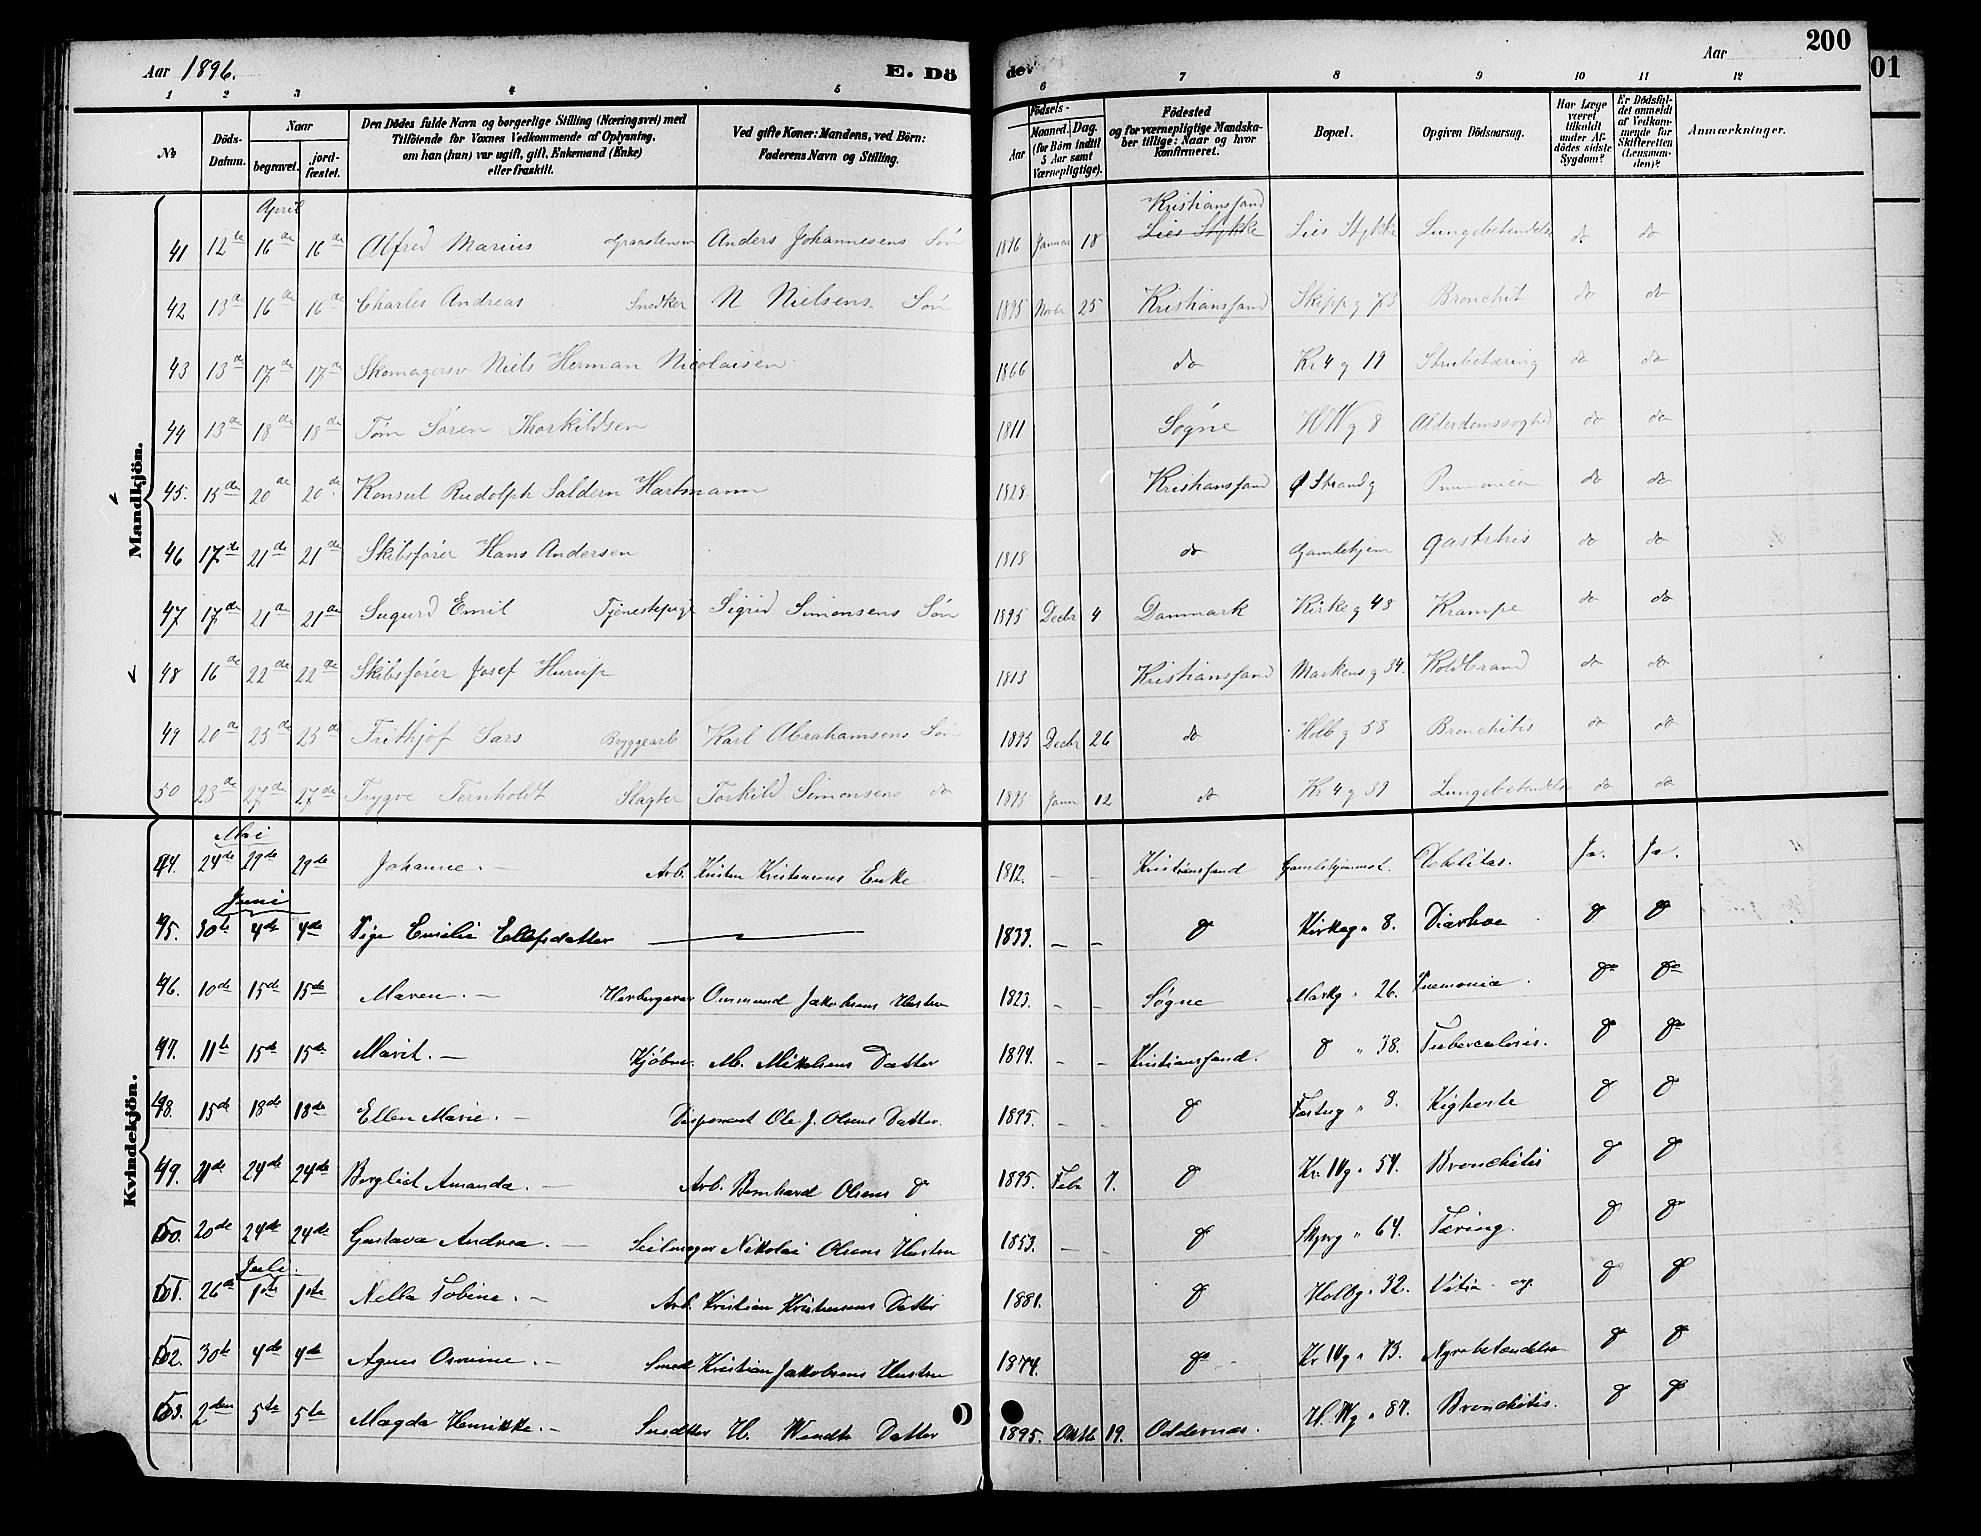 Aar 1896. E. Dö
de. Aar 200
01
1 2 3 4 5 6 7 8 9 10 11 12
No
Döds-Datum.
Naar
begravet.
jord-fæstet.
Den Dödes fulde Navn og borgerlige Stilling (Næringsvei) med
Tilföiende for Voxnes Vedkommende af Oplysning,
om han (hun) var ugift, gift, Enkemand (Enke)
eller fraskilt.
Ved gifte Koner: Mandens, ved Börn:
Faderens Navn og Stilling.
Födsels-
Aar
Maaned. Dag.
(for Börn indtil
5 Aar samt
Værnepligtige).
Födested
og for værnepligtige Mandska-
ber tillige: Naar og hvor
konfirmeret.
Bopæl.
Opgiven Dödsaarsag.
Har Læge
været
tilkaldt
under Af-
dödes sidste
Sygdom?
Er Dödsfal-
det anmeldt
af Vedkom-
mende for
Skifteretten
(Lensman-
den)?
Anmærkninger.
Mandkjön.
April
Kristianssand
41 12te 16de 16de Alfred Marius Graastensm Anders Johannesens Søn 1896 Januar 18 Lies Stykke Lies Stykke Lungebetendelse do do
42 13de 16de 16de Charles Andreas Snedker N Nielsens Søn 1895 Novbr 25 Kristianssand Skipp g 73 Bronchit do do
43 13de 17de 17de Skomagersv Niels Herman Nicolaisen 1866 do Kr 4 g 19 Strubetæring do do
44 13de 18de 18de Tøm Sören Thorkildsen 1811 Søgne H W g 8 Alderdomssvaghed do do
45. 15de 20de 20de Konsul Rudolph Saldern Hartmann 1828 Kristianssand Ø Strand g Pneumonica do do
46 17de 21de 21de Skibsfører Hans Andersen 1818 do Gamlehjem gastritis do do
47 17de 21de 21de Sugurd Emil Tjenestepige Sigrid Simonsens Søn 1895 Decbr 4 Danmark Kirke g 43 Krampe do do
48 16de 22de 22de Skibsfører Josef Hurup 1813 Kristianssand Markens g 34. Koldbrand do do
49 20de 25de 25de Frithjof Sars Bryggearb Karl Abrahamsens Søn 1895 Decbr 26 do Holb g 58 Bronchitis do do
50 23de 27de 27de Trygve Ternholdt Slagter Torkild Simonsens do 1895 Janr 12 do Kr 4 g 39 Lungebetendelse do do
Kvindekjön.
Mai
44. 24de 29de 29de Johanne. — Arb. Kristen Kristensens Enke 1812. — — Kristianssand Gamlehjemmet. Debilitas. Ja. Ja.
Juni
45. 30te 4de 4de Pige Emilie Ellefsdatter — 1833. — — do Kirkeg. 8. Diarhoe do do
46. 10de 15de 15de Maren. — Herbergerer Ommund Jakobsens Hustru 1823. — — Søgne Markg " 26. Pnemonia. do do
47. 11te 15de 15de Marit. — Kjøbm. M. Mikelsens Datter 1894. — — Kristianssand. do " 38. Tuberculosis. do do
48. 15de 18de 18de Ellen Marie. — Disponent Ole J. Olsens Datter. 1895. — — do Festng " 8. Kighoste do do
49. 21de 24de 24de Borglid Amanda. — Arb. Bernhard Olsens do 1895. Febr 7. do Kr. IVg " 54. Bronchitis do do
50. 20de 24de 24de Gustava Andrea. — Seilmager Nikolai Olsens Hustru 1853. — — do Skprg " 64. Tæring. do do
Juli.
51. 26de 1ste 1ste Nella Tobine. — Arb. Kristian Kristensens Datter 1881. do Holbg. 32. Vitia do do
52. 30te 4de 4de Agnes Osmine. — Smed Kristian Jakobsens Hustru 1874. do Kr IVg " 73. Nyrebetændelse do do
53. 2den 5te 5te Magda Henrikke. — Snedker H. Wendts Datter 1895. Oktb 19. Oddernæs. H. Wg " 87. Bronchitis. do do